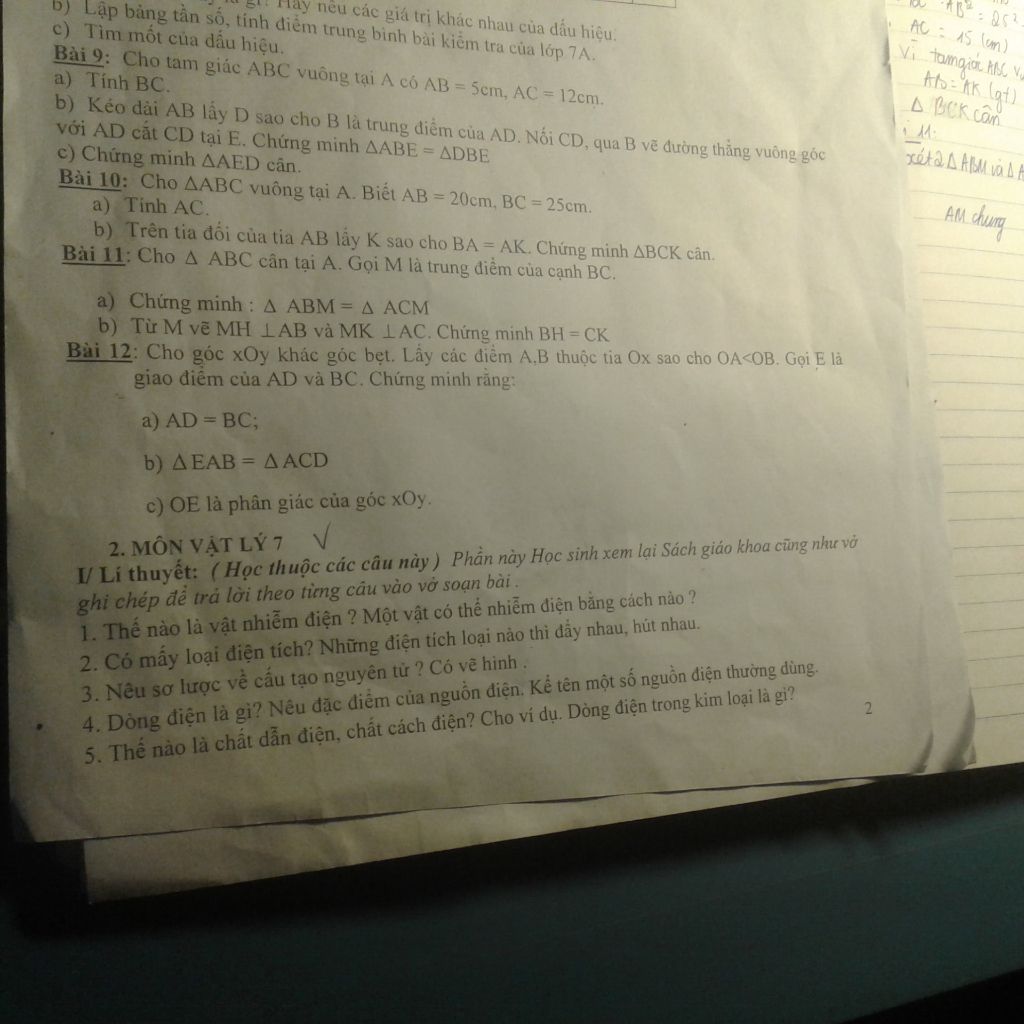 gì? Hãy nêu các giá trị khác nhau của dấu hiệu.
b) Lập bảng tần số, tính điểm trung bình bài kiểm tra của lớp 7A.
c) Tìm mốt của dấu hiệu.
Bài 9: Cho tam giác ABC vuông tại A có AB = 5cm, AC = 12cm.
a) Tính BC.
b) Kéo dài AB lấy D sao cho B là trung điểm của AD. Nối CD, qua B vẽ đường thẳng vuông góc
với AD cắt CD tại E. Chứng minh ΔABE = ΔDBE
c) Chứng minh ΔAED cân.
Bài 10: Cho ΔABC vuông tại A. Biết AB = 20cm, BC = 25cm.
a) Tính AC.
b) Trên tia đối của tia AB lấy K sao cho BA = AK. Chứng minh ΔBCK cân.
Bài 11: Cho Δ ABC cân tại A. Gọi M là trung điểm của cạnh BC.
a) Chứng minh : Δ ABM = Δ ACM
b) Từ M vẽ MH ⊥AB và MK ⊥AC. Chứng minh BH = CK
Bài 12: Cho góc xOy khác góc bẹt. Lấy các điểm A,B thuộc tia Ox sao cho OA<OB. Gọi E là
giao điểm của AD và BC. Chứng minh rằng:
a) AD = BC;
b) Δ EAB = Δ ACD
c) OE là phân giác của góc xOy.
2. MÔN VẬT LÝ 7 √
I/ Lí thuyết: ( Học thuộc các câu này ) Phần này Học sinh xem lại Sách giáo khoa cũng như vở
ghi chép để trả lời theo từng câu vào vở soạn bài .
1. Thế nào là vật nhiễm điện ? Một vật có thể nhiễm điện bằng cách nào ?
2. Có mấy loại điện tích? Những điện tích loại nào thì đẩy nhau, hút nhau.
3. Nêu sơ lược về cấu tạo nguyên tử ? Có vẽ hình .
4. Dòng điện là gì? Nêu đặc điểm của nguồn điện. Kể tên một số nguồn điện thường dùng.
5. Thế nào là chất dẫn điện, chất cách điện? Cho ví dụ. Dòng điện trong kim loại là gì?
2
AB² = 25²
AC = 15 (cm)
Vì tam giác ABC
AB = AK (gt)
Δ BCK cân
11:
xét 2 Δ ABM và Δ A
AM chung